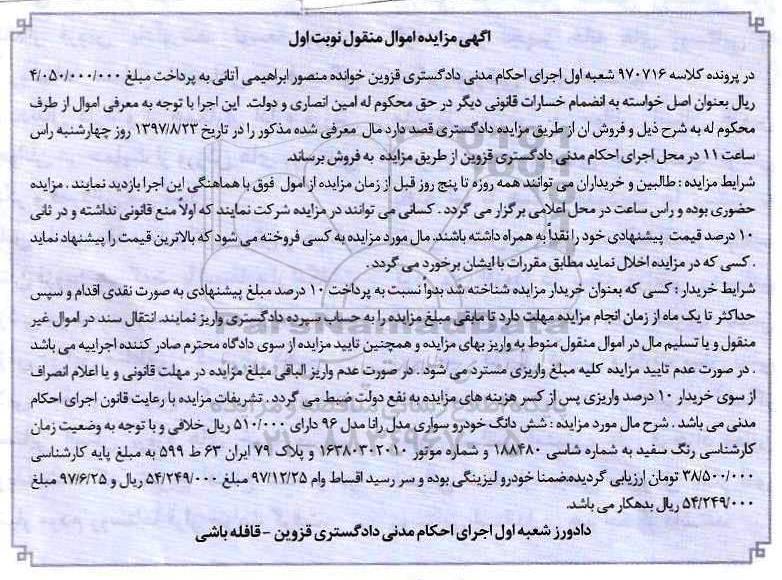 آگهی مزایده اموال منقول نوبت اول
در پرونده کلاسه ۹۷۰۷۱۶ شعبه اول اجرای احکام مدنی دادگستری قزوین خوانده منصور ابراهیمی آتانی به پرداخت مبلغ ۴/۰۵۰/۰۰۰/۰۰۰
ریال بعنوان اصل خواسته به انضمام خسارات قانونی دیگر در حق محکوم له امین انصاری و دولت. این اجرا با توجه به معرفی اموال از طرف
محکوم له به شرح ذیل و فروش ان از طریق مزایده دادگستری قصد دارد مال معرفی شده مذکور را در تاریخ ۱۳۹۷/۸/۲۳ روز چهارشنبه راس
ساعت ۱۱ در محل اجرای احکام مدنی دادگستری قزوین از طریق مزایده به فروش برساند.
شرایط مزایده : طالبین و خریداران می توانند همه روزه تا پنج روز قبل از زمان مزایده از امول فوق با هماهنگی این اجرا بازدید نمایند . مزایده
حضوری بوده و راس ساعت در محل اعلامی برگزار می گردد . کسانی می توانند در مزایده شرکت نمایند که اولاً منع قانونی نداشته و در ثانی
۱۰ درصد قیمت پیشنهادی خود را نقداً به همراه داشته باشند. مال مورد مزایده به کسی فروخته می شود که بالاترین قیمت را پیشنهاد نماید
. کسی که در مزایده اخلال نماید مطابق مقررات با ایشان برخورد می گردد .
شرایط خریدار : کسی که بعنوان خریدار مزایده شناخته شد بدواً نسبت به پرداخت ۱۰ درصد مبلغ پیشنهادی به صورت نقدی اقدام و سپس
حداکثر تا یک ماه از زمان انجام مزایده مهلت دارد تا مابقی مبلغ مزایده را به حساب سپرده دادگستری واریز نمایند. انتقال سند در اموال غیر
منقول و یا تسلیم مال در اموال منقول منوط به واریز بهای مزایده و همچنین تایید مزایده از سوی دادگاه محترم صادر کننده اجراییه می باشد
. در صورت عدم تایید مزایده کلیه مبلغ واریزی مسترد می شود . در صورت عدم واریز الباقی مبلغ مزایده در مهلت قانونی و یا اعلام انصراف
از سوی خریدار ۱۰ درصد واریزی پس از کسر هزینه های مزایده به نفع دولت ضبط می گردد . تشریفات مزایده با رعایت قانون اجرای احکام
مدنی می باشد . شرح مال مورد مزایده : شش دانگ خودرو سواری مدل رانا مدل ۹۶ دارای ۵۱۰/۰۰۰ ریال خلافی و با توجه به وضعیت زمان
کارشناسی رنگ سفید به شماره شاسی ۱۸۸۴۸۰ و شماره موتور ۱۶۳۸۰۳۰۲۰۱۰ و پلاک ۷۹ ایران ۶۳ ط ۵۹۹ به مبلغ پایه کارشناسی
۳۸/۵۰۰/۰۰۰ تومان ارزیابی گردیده.ضمنا خودرو لیزینگی بوده و سر رسید اقساط وام ۹۷/۱۲/۲۵ مبلغ ۵۴/۲۴۹/۰۰۰ ریال و ۹۷/۶/۲۵ مبلغ
۵۴/۲۴۹/۰۰۰ ریال بدهکار می باشد.
دادورز شعبه اول اجرای احکام مدنی دادگستری قزوین - قافله باشی